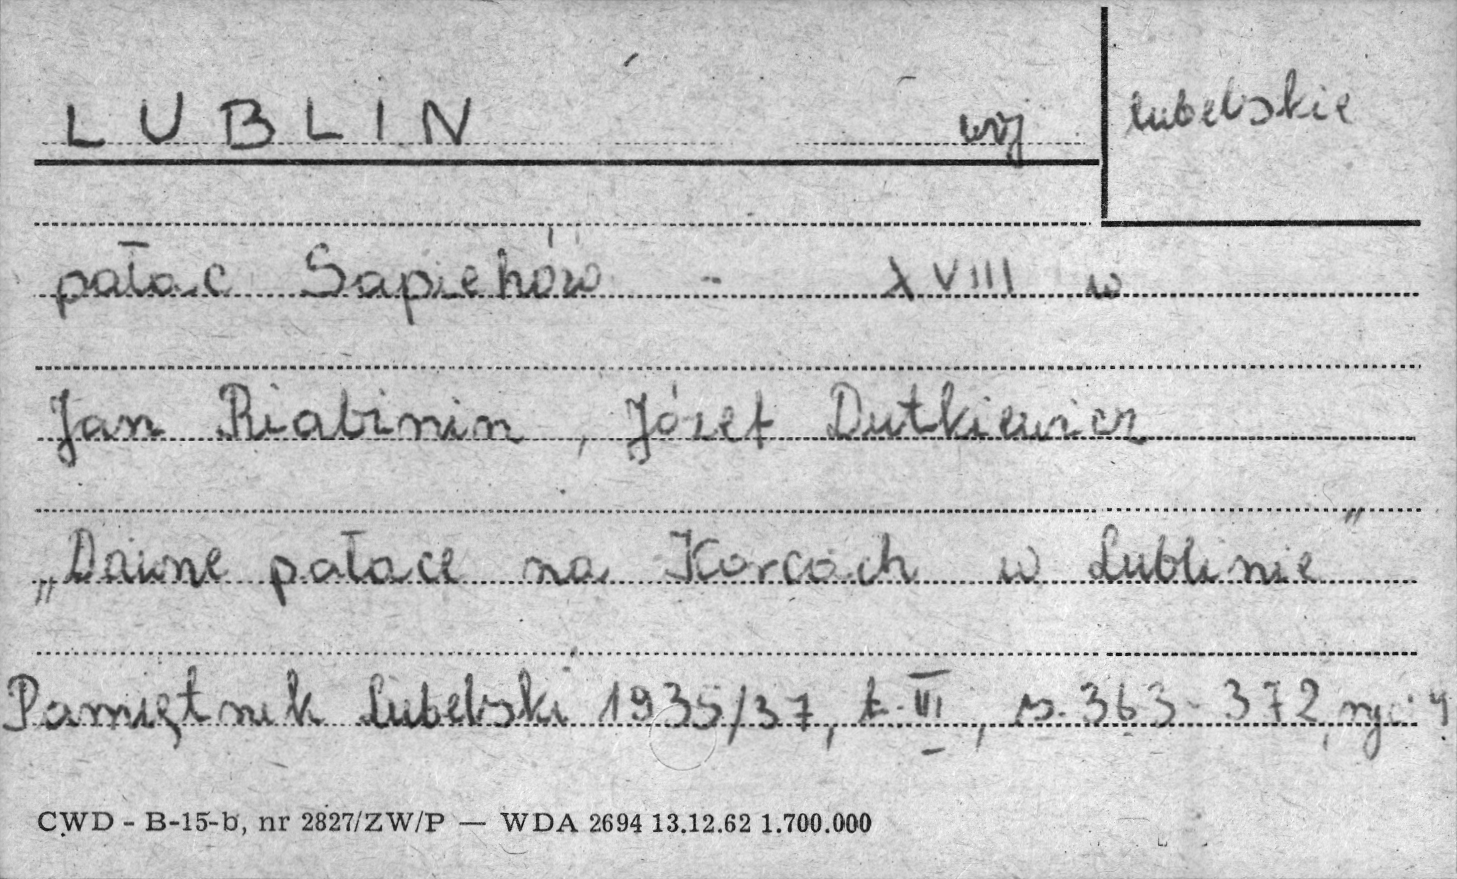 LUBLIN woj lubelskie
pałac Sapiehów - XVIII w
Jan Riabinin, Józef Dutkiewicz
„Dawne pałace na Korcach w Lublinie”
Pamiętnik Lubelski 1935/37, t. III, s. 363-372, ryc. 4
CWD - B-15-b, nr 2827/ZW/P — WDA 2694 13.12.62 1.700.000